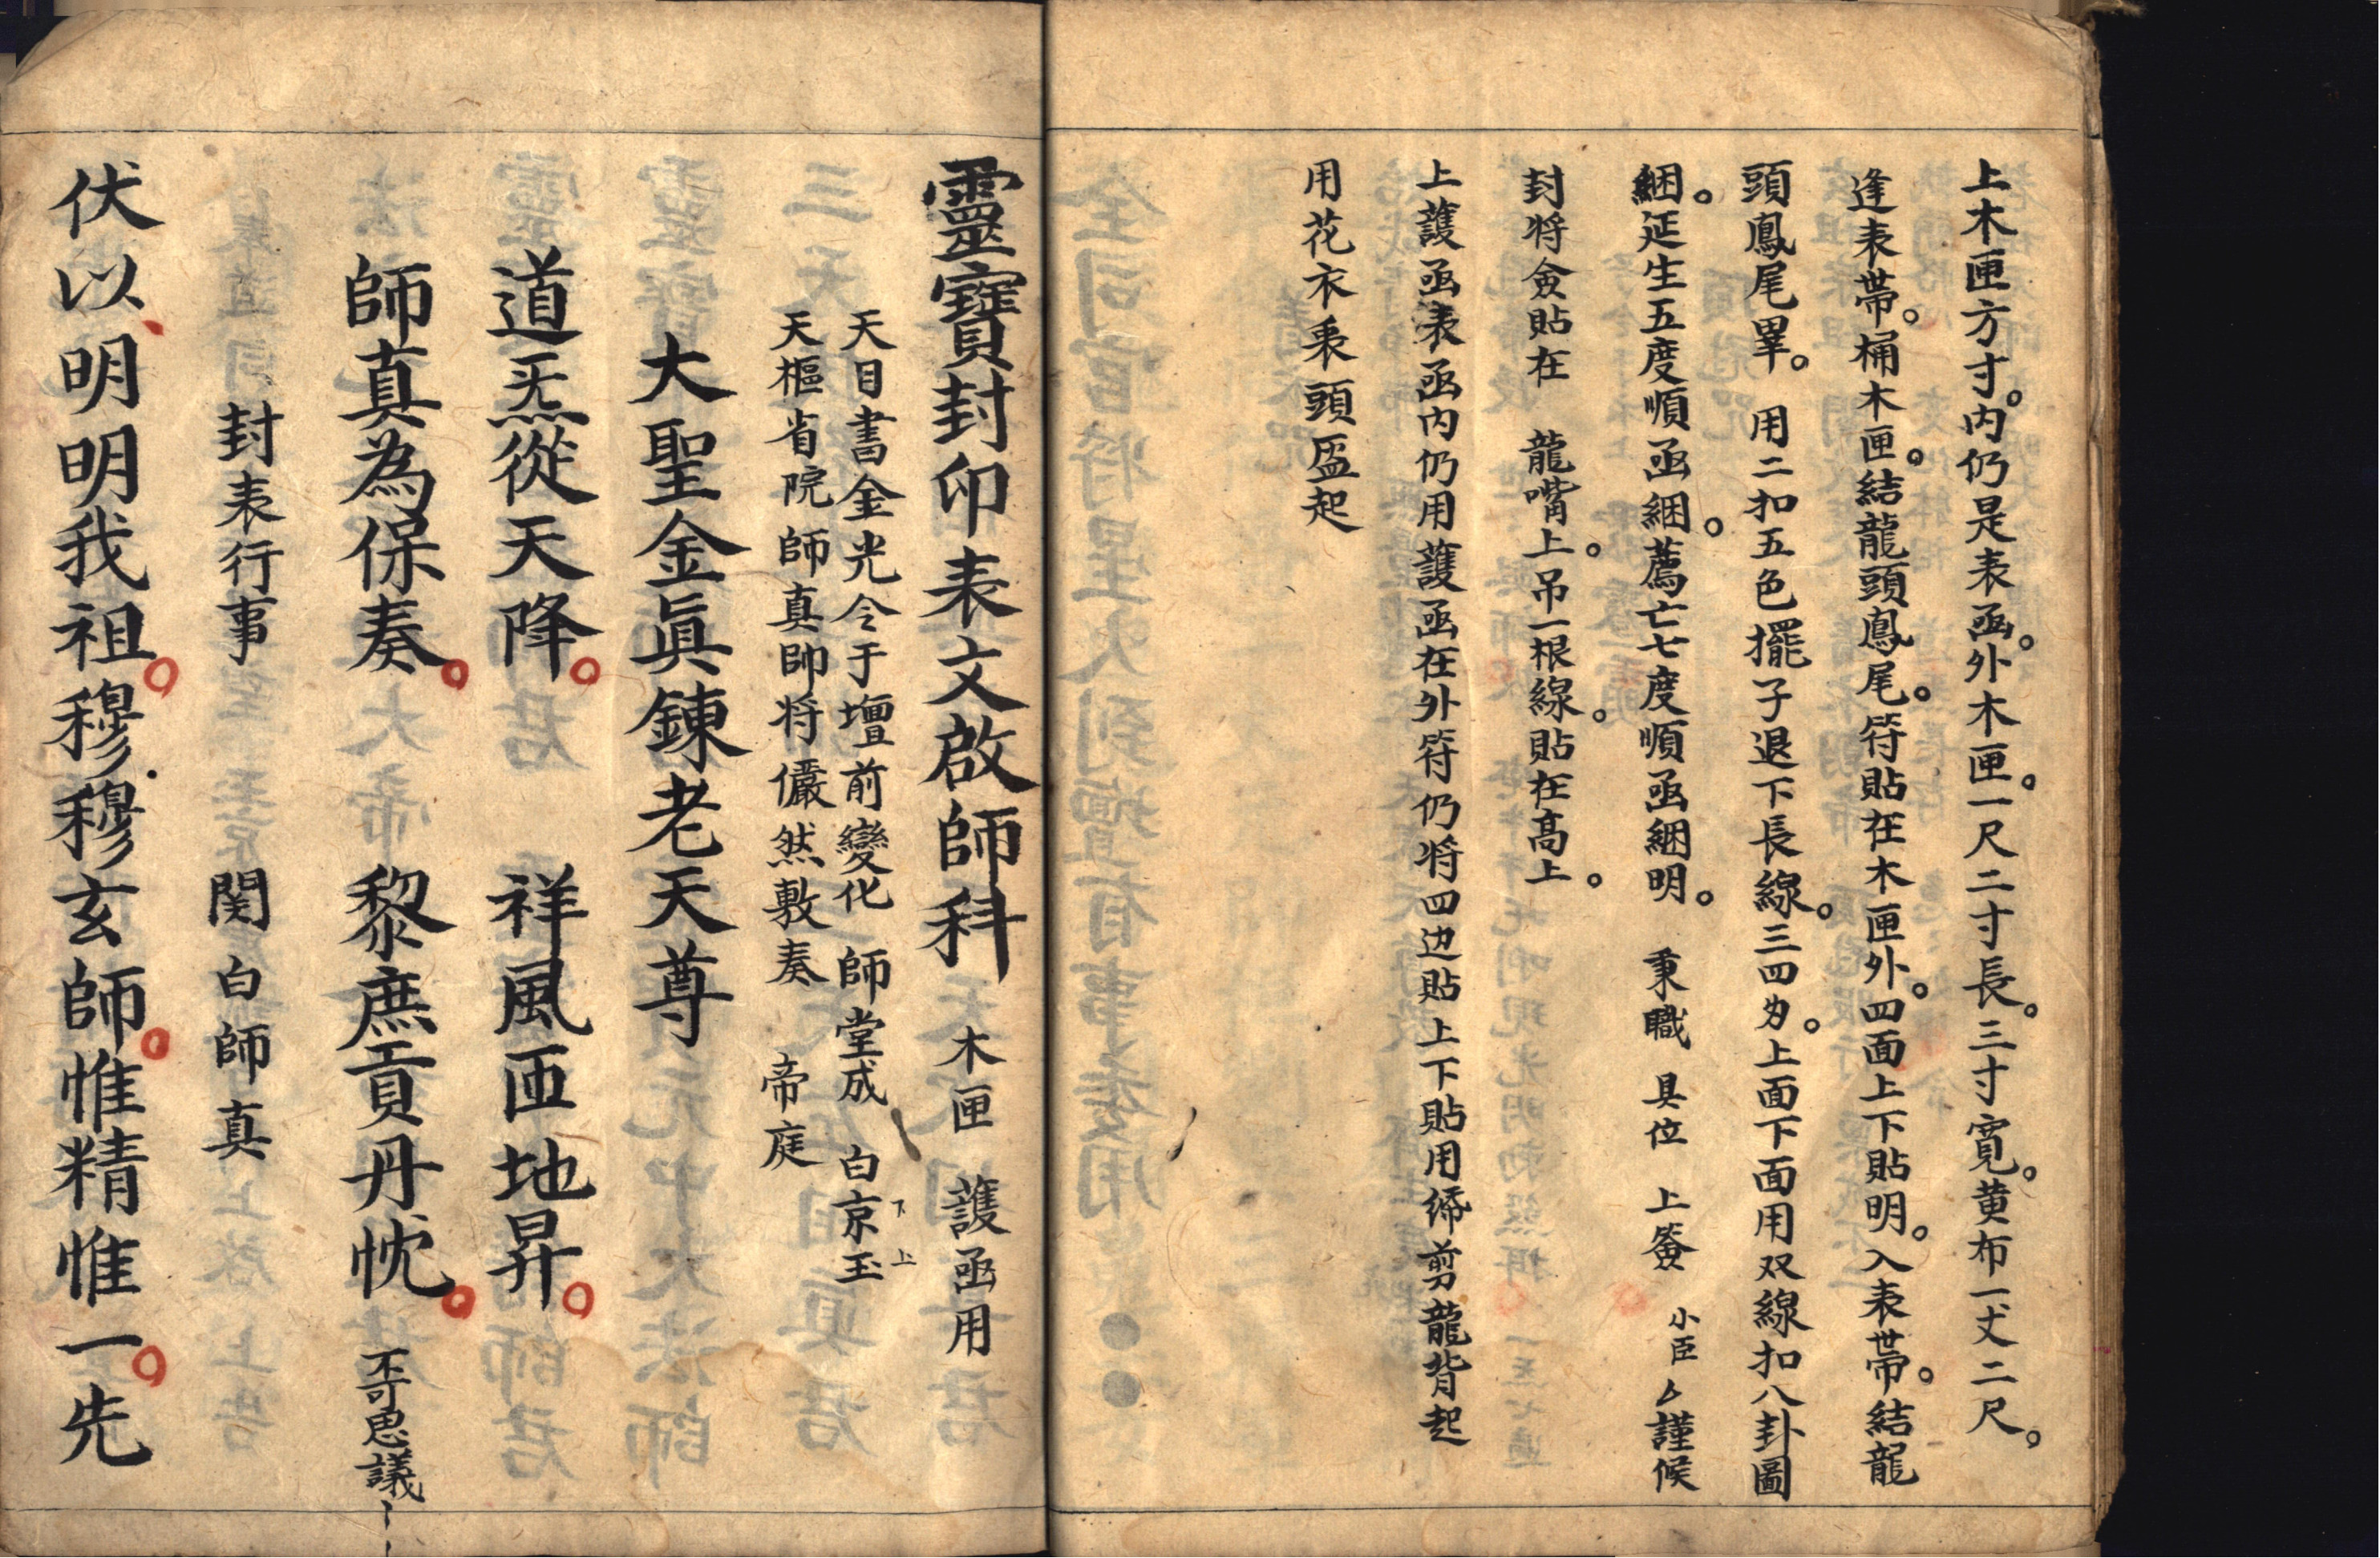 上木匣方寸。内仍是表函。外木匣。一尺二寸長。三寸寬。黄布一丈二尺。
逢表帶。桶木匣。結龍頭鳳尾。符貼在木匣外。四面上下貼明。入表帶。結龍
頭鳳尾畢。用二扣五色擺子退下長線。三四匁。上面下面用双線扣八卦圖
綑。延生五度順函綑。薦亡七度順函綑明。秉職 具位 上簽 小臣厶謹候
封将僉貼在 龍嘴上。吊一根線。貼在高上。
上護函表函内仍用護函在外符仍将四边貼上下貼用縧剪龍背起
用花衣表頭盖起
靈寶封印表文啟師科 木匣 護函用
天目書金光令于壇前變化 師堂成 白京玉 下上
天樞省院師真帥将儼然敷奏 帝庭
大聖金真鍊老天尊
道炁從天降。祥風匝地昇。
師真為保奏。黎庶貢丹忱。 不可思議
封表行事 関白師真
伏以明明我祖。穆穆玄師。惟精惟一。先